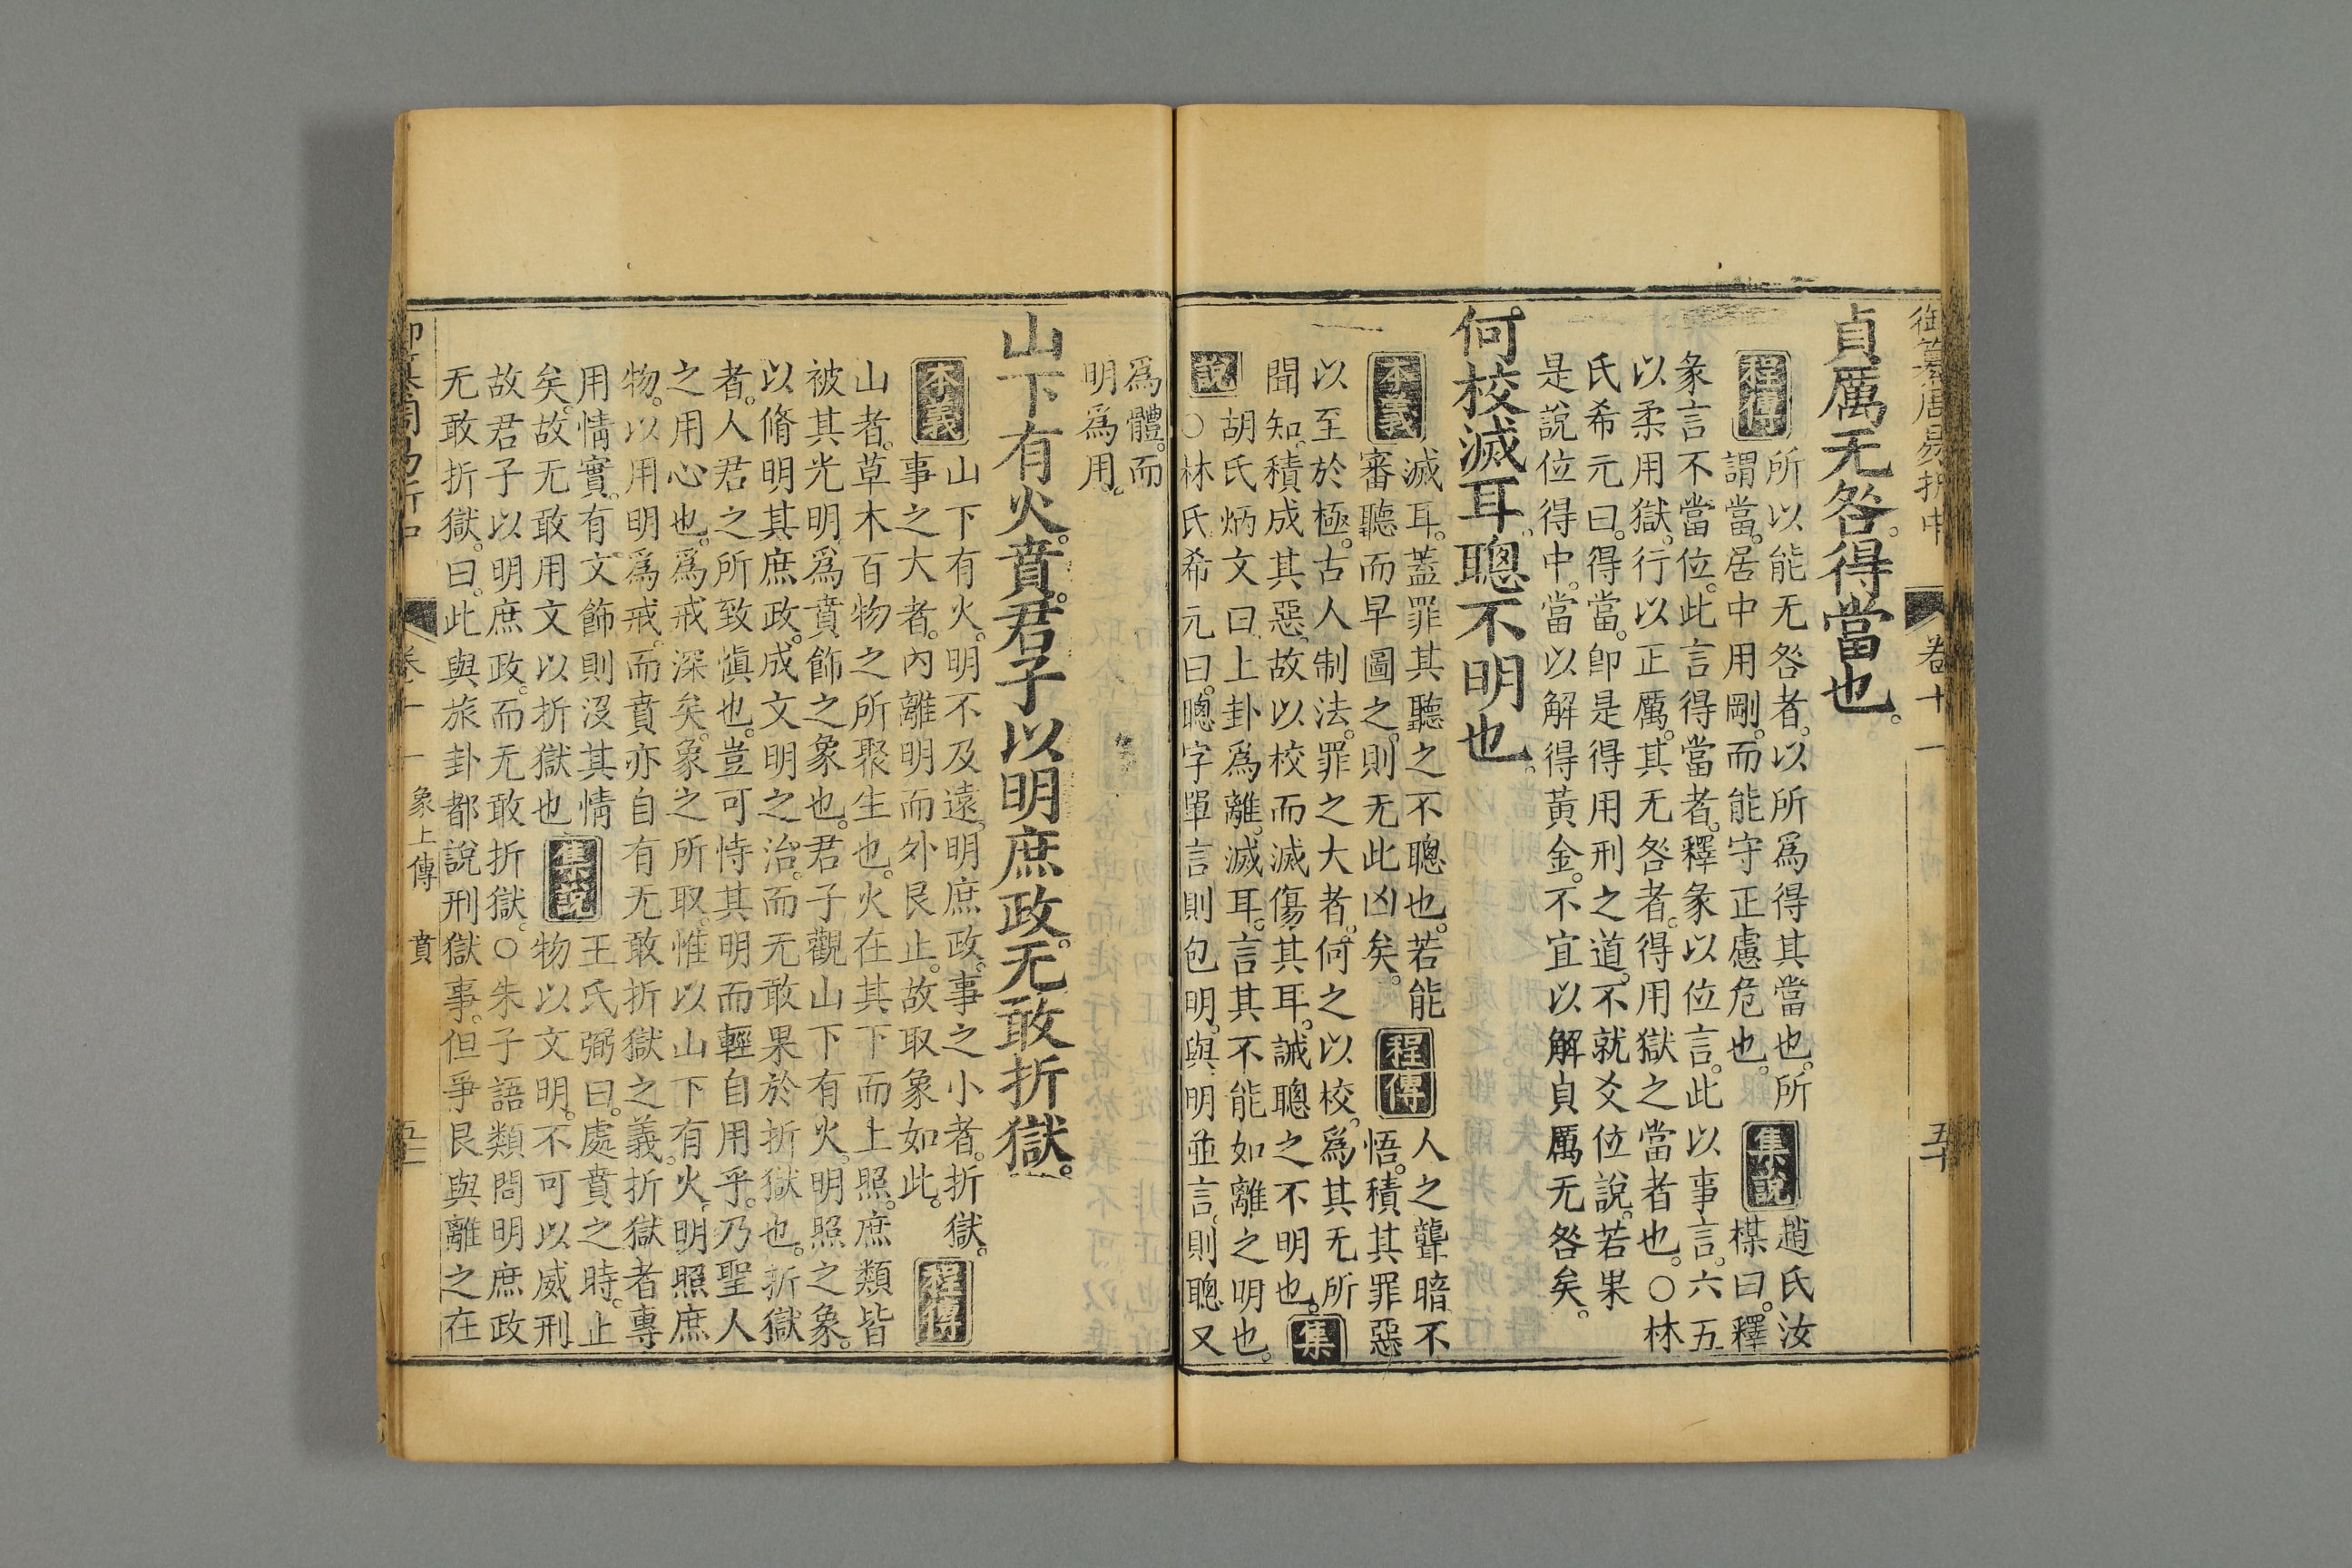 御纂周易折中
卷十一
五十
貞厲无咎。得當也。
程傳
所以能无咎者。以所爲得其當也。所
謂當。居中用剛。而能守正慮危也。
集說
趙氏汝
楳曰。釋
彖言不當位。此言得當者。釋彖以位言。此以事言。六五
以柔用獄。行以正厲。其无咎者。得用獄之當者也。○林
氏希元曰。得當。卽是得用刑之道。不就爻位說。若果
是說位得中。當以解得黃金。不宜以解貞厲无咎矣。
何校滅耳。聰不明也。
本義
滅耳。蓋罪其聽之不聰也。若能
審聽而早圖之。則无此凶矣。
程傳
人之聾暗不
悟。積其罪惡
以至於極。古人制法。罪之大者。何之以校。爲其无所
聞知。積成其惡。故以校而滅傷其耳。誠聰之不明也。
集
說
胡氏炳文曰上卦爲離。滅耳。言其不能如離之明也。
○林氏希元曰。聰字單言則包明。與明並言。則聰又
爲體。而
明爲用。
山下有火。賁。君子以明庶政。无敢折獄。
本義
山下有火。明不及遠。明庶政。事之小者。折獄。
事之大者。內離明而外艮止。故取象如此。
程傳
山者。草木百物之所聚生也。火在其下而上照。庶類皆
被其光明。爲賁飾之象也。君子觀山下有火。明照之象。
以脩明其庶政。成文明之治。而无敢果於折獄也。折獄
者。人君之所致愼也。豈可恃其明而輕自用乎。乃聖人
之用心也。爲戒深矣。象之所取。惟以山下有火。明照庶
物。以用明爲戒。而賁亦自有无敢折獄之義。折獄者專
用情實。有文飾則沒其情
矣。故无敢用文以折獄也
集說
王氏弼曰。處賁之時。止
物以文明。不可以威刑
故君子以明庶政。而无敢折獄。○朱子語類問明庶政
无敢折獄。曰。此與旅卦都說刑獄事。但爭艮與離之在
卷十一
象上傳
賁